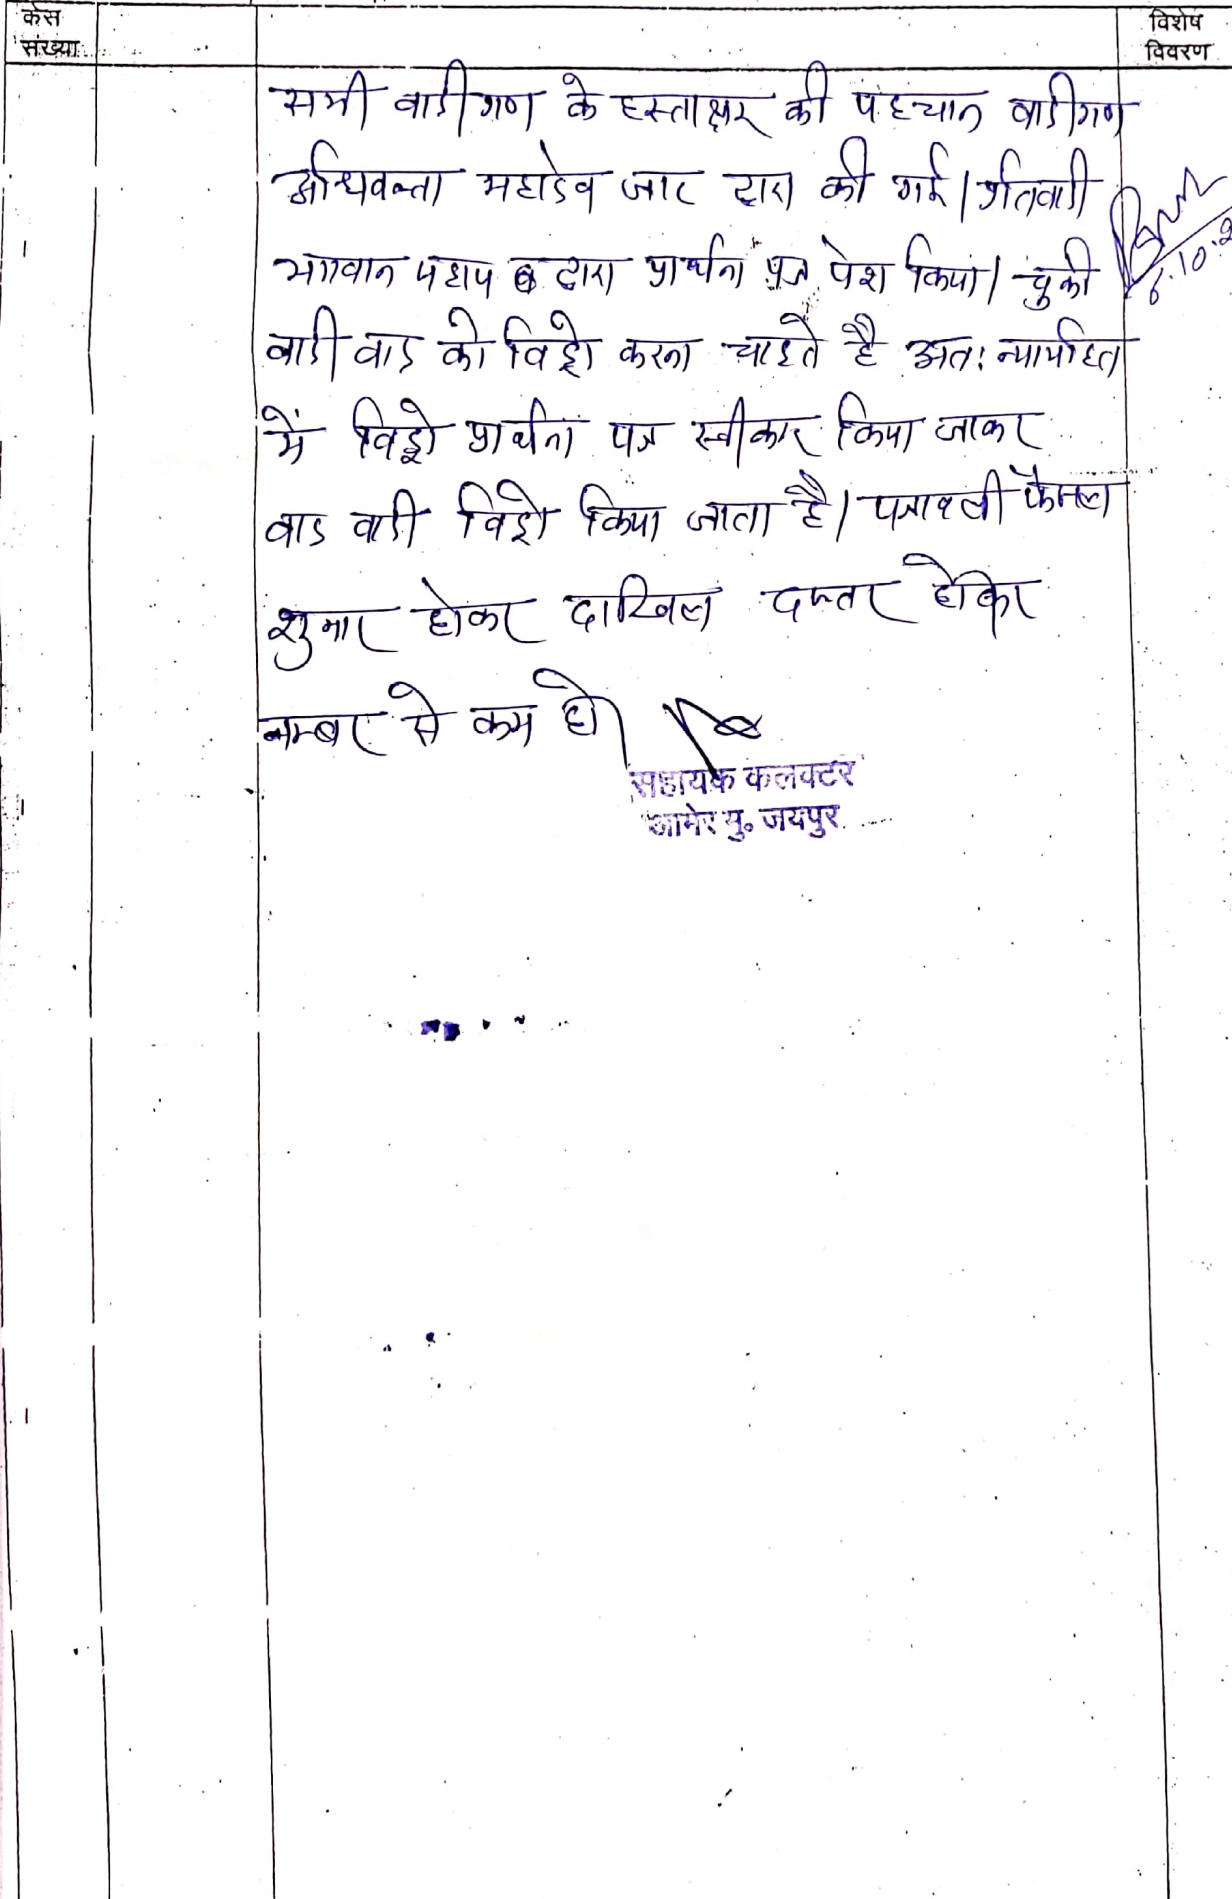 केस
संख्या
विशेष
विवरण
सभी वादीगण के हस्ताक्षर की पहचान वादीगण
अधिवक्ता महादेव जाट द्वारा की गई। प्रतिवादी
भगवान सहाय द्वारा प्रार्थना पत्र पेश किया। चुकी
वादी वाद को विड्रो करना चाहते है अतः न्यायहित
में विड्रो प्रार्थना पत्र स्वीकार किया जाकर
वाद वादी विड्रो किया जाता है। पत्रावली फैसल
शुमार होकर दाखिल दफ्तर होकर
नम्बर से कम हो।
सहायक कलक्टर
आमेर मु० जयपुर
6.10.2